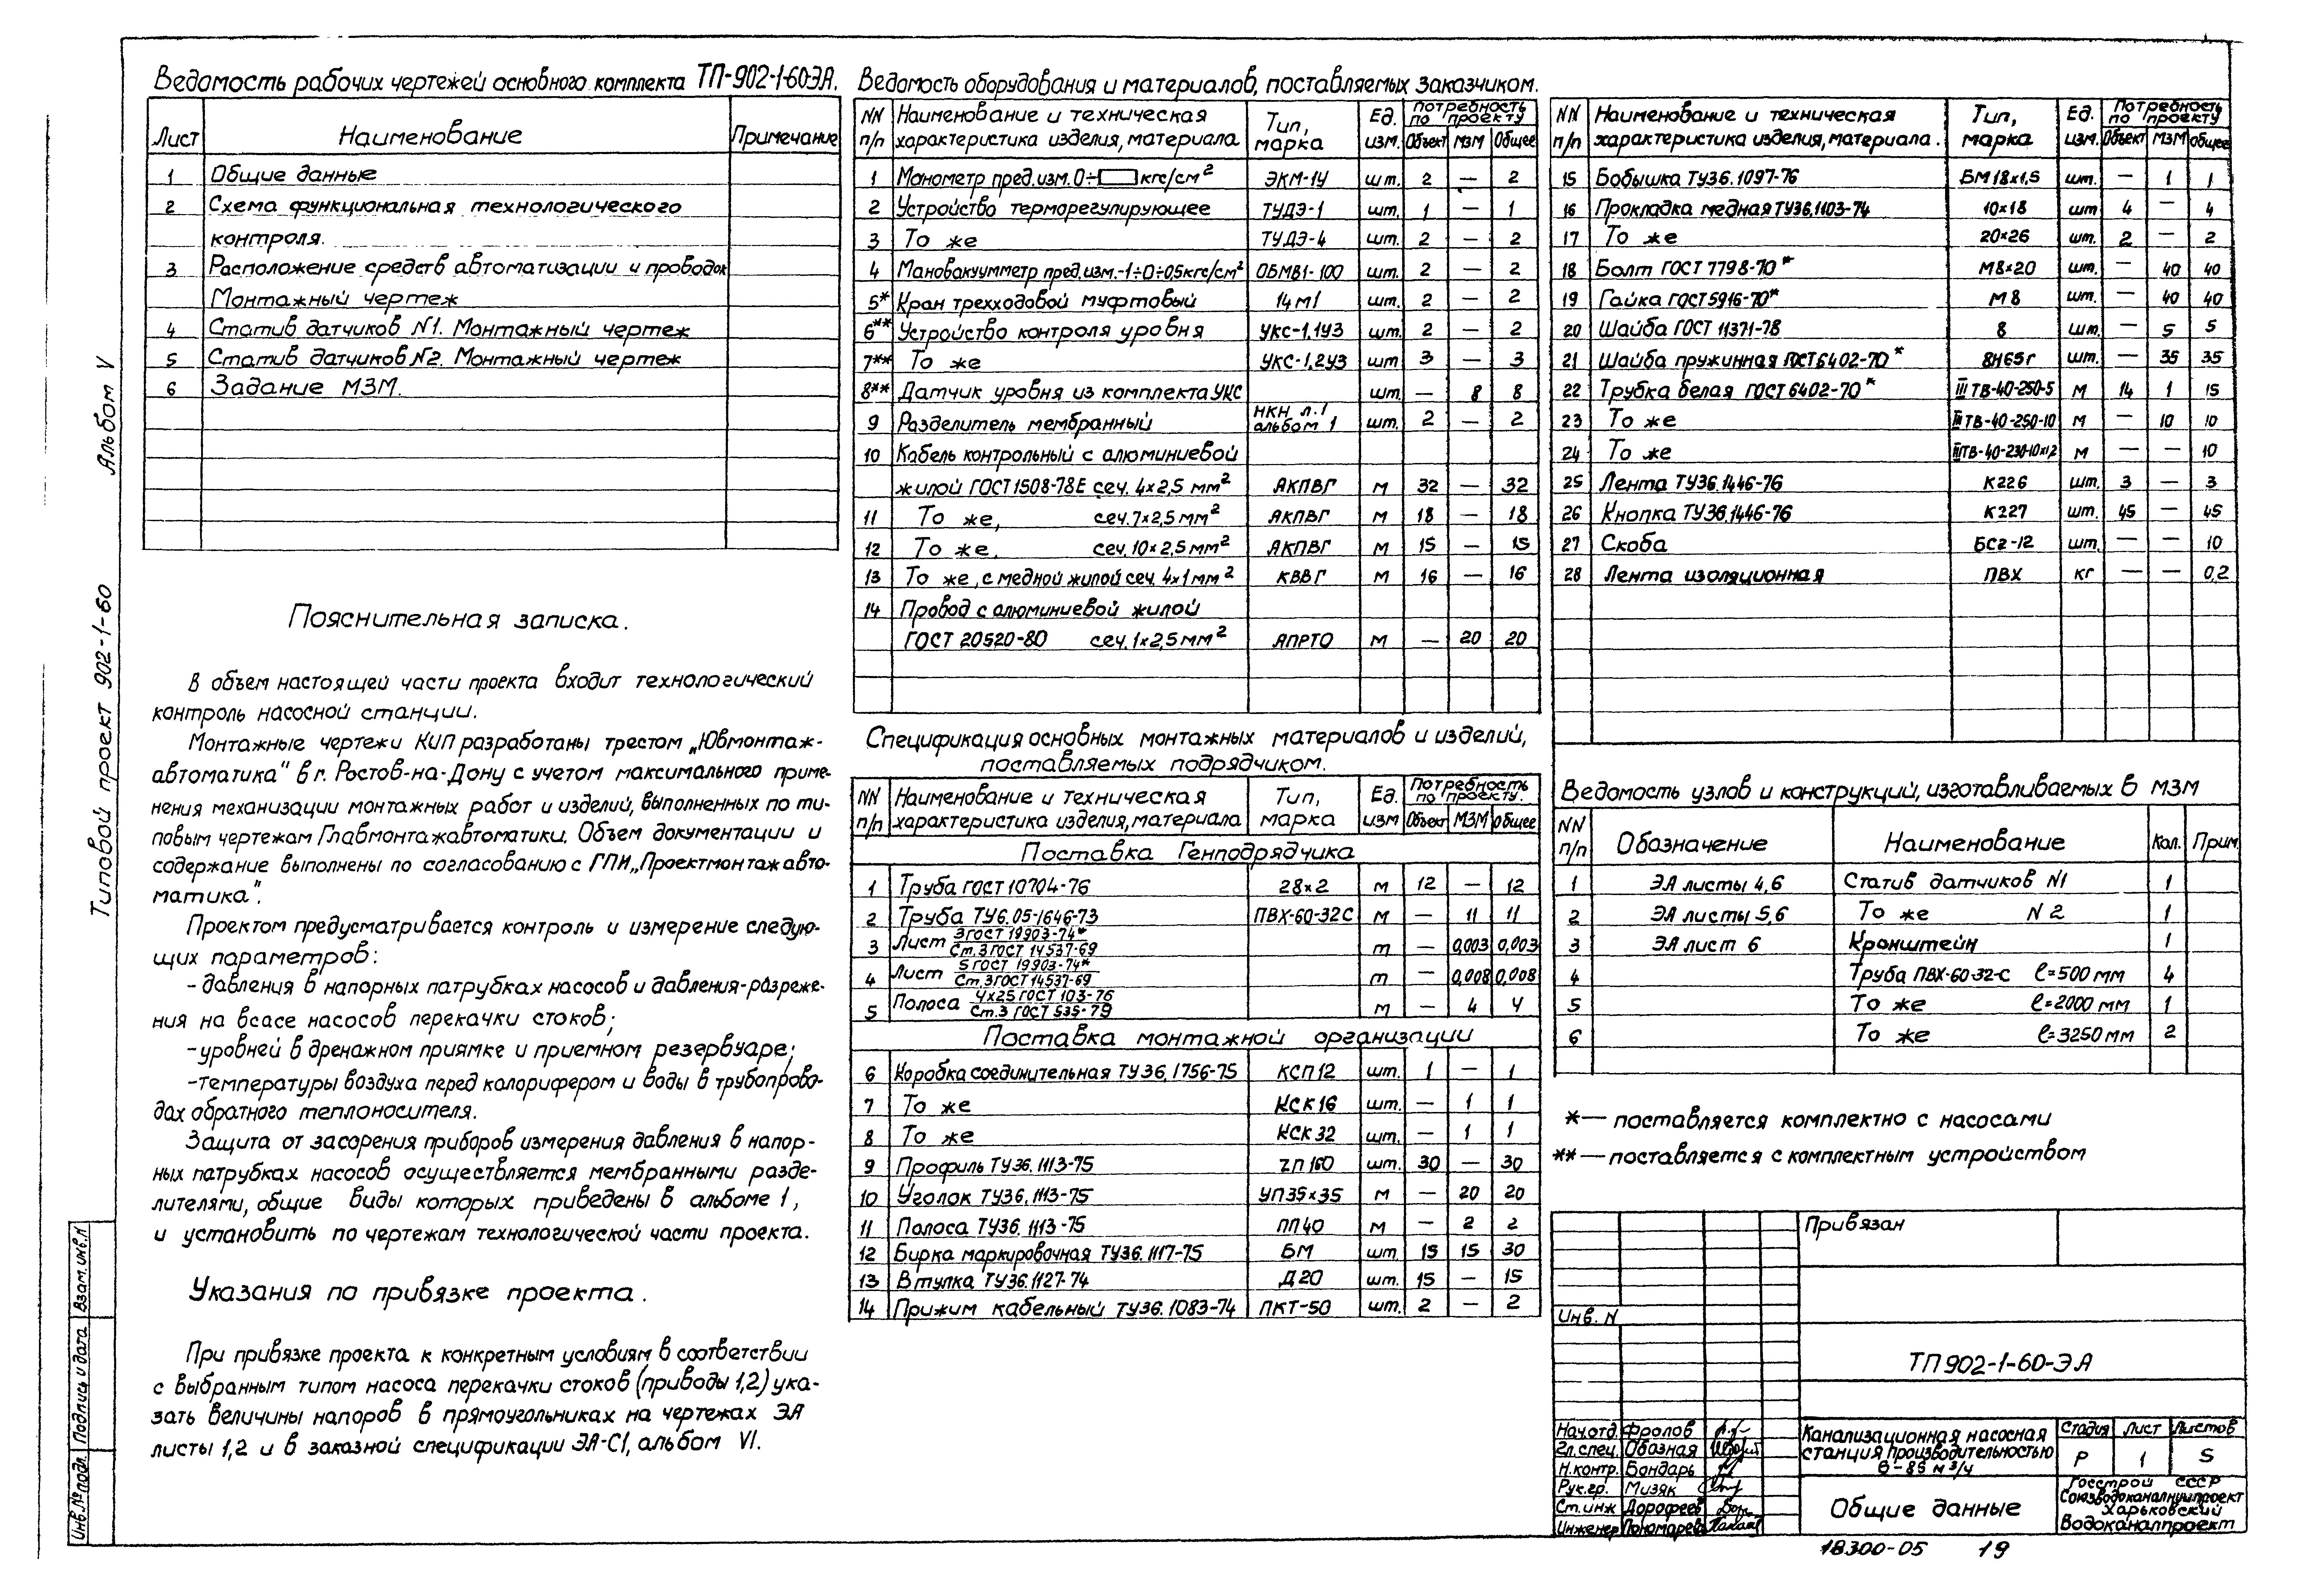 Ведомость рабочих чертежей основного комплекта ТП-902-1-60-ЭА.
Лист Наименование Примечание
1 Общие данные
2 Схема функциональная технологического
контроля.
3 Расположение средств автоматизации и проводок
Монтажный чертеж
4 Статив датчиков N1. Монтажный чертеж
5 Статив датчиков N2. Монтажный чертеж
6 Задание МЗМ.
Пояснительная записка.
В объем настоящей части проекта входит технологический
контроль насосной станции.
Монтажные чертежи КИП разработаны трестом „Ювмонтаж-
автоматика" в г. Ростов-на-Дону с учетом максимального приме-
нения механизации монтажных работ и изделий, выполненных по ти-
повым чертежам Главмонтажавтоматики. Объем документации и
содержание выполнены по согласованию с ГПИ „Проектмонтажавто-
матика".
Проектом предусматривается контроль и измерение следую-
щих параметров:
- давления в напорных патрубках насосов и давления-разреже-
ния на всасе насосов перекачки стоков;
-уровней в дренажном приямке и приемном резервуаре;
-температуры воздуха перед калорифером и воды в трубопрово-
дах обратного теплоносителя.
Защита от засорения приборов измерения давления в напор-
ных патрубках насосов осуществляется мембранными разде-
лителями, общие виды которых приведены в альбоме 1,
и установить по чертежам технологической части проекта.
Указания по привязке проекта.
При привязке проекта к конкретным условиям в соответствии
с выбранным типом насоса перекачки стоков (приводы 1,2) ука-
зать величины напоров в прямоугольниках на чертежах ЭА
листы 1,2 и в заказной спецификации ЭА-С1, альбом VI.
Ведомость оборудования и материалов, поставляемых заказчиком.
NN Наименование и техническая Тип, Ед. Потребность по проекту
п/п характеристика изделия, материала марка изм. Объект МЗМ Общее
1 Манометр пред. изм. 0÷ кгс/см² ЭКМ-1У шт. 2 — 2
2 Устройство терморегулирующее ТУДЭ-1 шт. 1 — 1
3 То же ТУДЭ-4 шт. 2 — 2
4 Мановакуумметр пред. изм.-1÷0÷0,5кгс/см² ОБМВ1-100 шт. 2 — 2
5* Кран трехходовой муфтовый 14М1 шт. 2 — 2
6** Устройство контроля уровня УКС-1,1У3 шт. 2 — 2
7** То же УКС-1,2У3 шт 3 — 3
8** Датчик уровня из комплекта УКС шт. — 8 8
9 Разделитель мембранный НКН л.1 альбом 1 шт. 2 — 2
10 Кабель контрольный с алюминиевой
жилой ГОСТ 1508-78Е сеч. 4×2,5 мм² АКПВГ м 32 — 32
11 То же, сеч. 7×2,5 мм² АКПВГ м 18 — 18
12 То же. сеч. 10×2,5 мм² АКПВГ м 15 — 15
13 То же, с медной жилой сеч. 4×1 мм² КВВГ м 16 — 16
14 Провод с алюминиевой жилой
ГОСТ 20520-80 сеч. 1×2,5 мм² АПРТО м — 20 20
Спецификация основных монтажных материалов и изделий,
поставляемых подрядчиком.
NN Наименование и техническая Тип, Ед. Потребность по проекту.
п/п характеристика изделия, материала марка изм Объект МЗМ общее
Поставка Генподрядчика
1 Труба ГОСТ 10704-76 28×2 м 12 — 12
2 Труба ТУ6.05-1646-73 ПВХ-60-32С м — 11 11
3 Лист 3 ГОСТ 19903-74* / Ст.3 ГОСТ 14537-69 т — 0,003 0,003
4 Лист 5 ГОСТ 19903-74* / Ст.3 ГОСТ 14537-69 т — 0,008 0,008
5 Полоса 4×25 ГОСТ 103-76 / Ст.3 ГОСТ 535-79 м — 4 4
Поставка монтажной организации
6 Коробка соединительная ТУ 36.1756-75 КСП12 шт. 1 — 1
7 То же КСК16 шт. — 1 1
8 То же КСК32 шт. — 1 1
9 Профиль ТУ36.1113-75 ZП160 шт. 30 — 30
10 Уголок ТУ36.1113-75 УП35×35 м — 20 20
11 Полоса ТУ36.1113-75 ПП40 м — 2 2
12 Бирка маркировочная ТУ36.1117-75 БМ шт. 15 15 30
13 Втулка ТУ36.1127-74 Д20 шт. 15 — 15
14 Прижим кабельный ТУ36.1083-74 ПКТ-50 шт. 2 — 2
NN Наименование и техническая Тип, Ед. Потребность по проекту
п/п характеристика изделия, материала. марка изм. Объект МЗМ общее
15 Бобышка ТУ36.1097-76 БМ18×1,5 шт. — 1 1
16 Прокладка медная ТУ36.1103-74 10×18 шт 4 — 4
17 То же 20×26 шт. 2 — 2
18 Болт ГОСТ 7798-70* М8×20 шт. — 40 40
19 Гайка ГОСТ 5916-70* М8 шт. — 40 40
20 Шайба ГОСТ 11371-78 8 шт. — 5 5
21 Шайба пружинная ГОСТ 6402-70* 8Н65г шт. — 35 35
22 Трубка белая ГОСТ 6402-70* III ТВ-40-250-5 м 14 1 15
23 То же III ТВ-40-250-10 м — 10 10
24 То же III ТВ-40-230-10×1,2 м — — 10
25 Лента ТУ36.1446-76 К226 шт. 3 — 3
26 Кнопка ТУ36.1446-76 К227 шт. 45 — 45
27 Скоба БС2-12 шт. — — 10
28 Лента изоляционная ПВХ кг — — 0,2
Ведомость узлов и конструкций, изготавливаемых в МЗМ
NN п/п Обозначение Наименование Кол. Прим.
1 ЭА листы 4,6 Статив датчиков N1 1
2 ЭА листы 5,6 То же N2 1
3 ЭА лист 6 Кронштейн 1
4 Труба ПВХ-60-32-С ℓ=500 мм 4
5 То же ℓ=2000 мм 1
6 То же ℓ=3250 мм 2
* — поставляется комплектно с насосами
** — поставляется с комплектным устройством
Привязан
Инв. N
ТП 902-1-60-ЭА
Нач.отд. Фролов
Гл.спец. Обозная
Н.контр. Бондарь
Рук.гр. Мизяк
Ст.инж Дорофеев
Инженер Пономарева
Канализационная насосная
станция производительностью
6-85 м³/ч
Стадия Лист Листов
Р 1 5
Общие данные
Госстрой СССР
Союзводоканалниипроект
Харьковский
Водоканалпроект
18300-05 19
Альбом V
Типовой проект 902-1-60
Взам. инв. N
Подпись и дата
Инв. № подл.